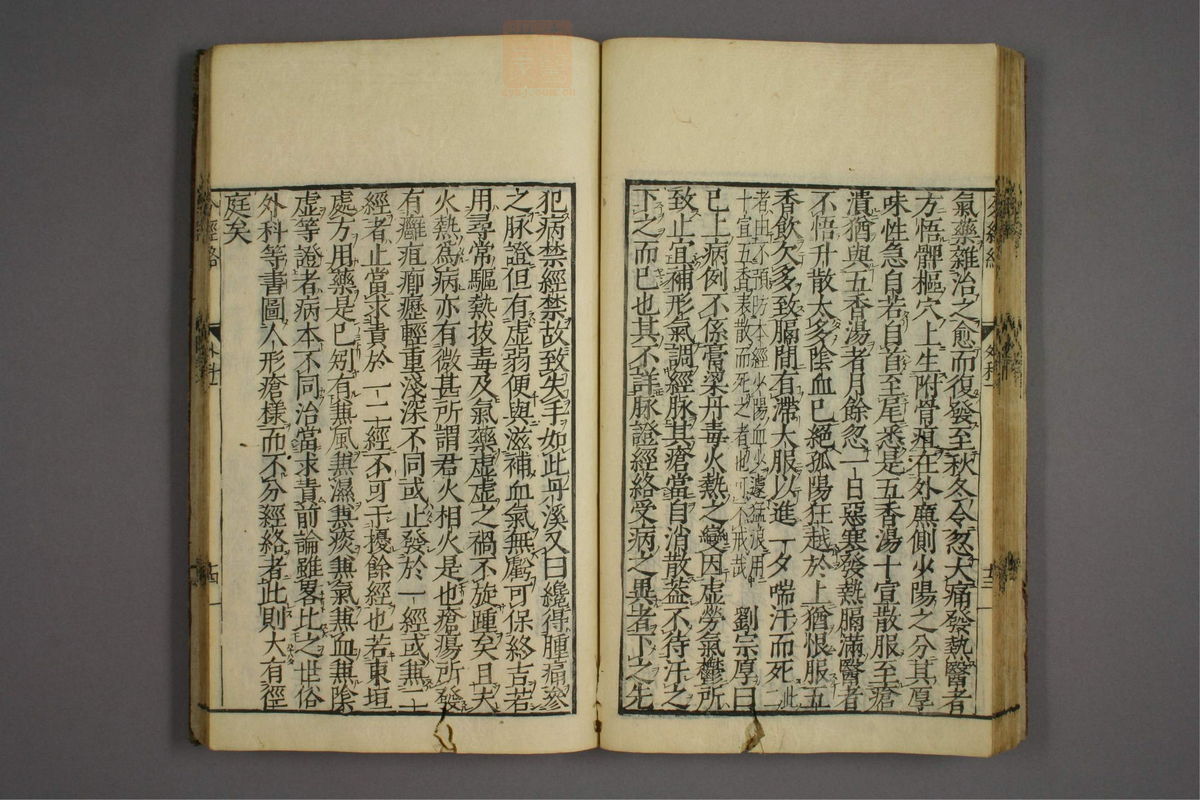 氣藥雜治之愈而復發至秋冬令忽大痛發熱醫者
方悟髀樞穴上生附骨疽在外廉側少陽之分其厚
味性急自若自首至尾悉是五香湯十宣散服至瘡
潰猶與五香湯者月餘忽一日惡寒發熱膈滿醫者
不悟升散太多陰血已絕孤陽狂越於上猶恨服五
香飲欠多致膈間有滯大服以進一夕喘汗而死此二
者由不預防本經少陽血少之遽猛浪用
十宣五香表散而死之者也可不戒哉 劉宗厚曰
已上病例不係膏粱丹毒火熱之變因虛勞氣鬱所
致止宜補形氣調經脉其瘡當自消散葢不待汗之
下之而已也其不詳脉證經絡受病之異者下之先
犯病禁經禁故致失手如此丹溪又曰纔得腫痛參
之脉證但有虛弱便與滋補血氣無虧可保終吉若
用尋常驅熱拔毒及氣藥虛虛之禍不旋踵矣且夫
火熱爲病亦有微甚所謂君火相火是也瘡瘍所發
有癰疽癤癧輕重淺深不同或止發於一經或兼二
經者止當求責於一二經不可干擾餘經也若東垣
處方用藥是已矧有兼風兼濕兼痰兼氣兼血兼陰
虛等證者病本不同治當求責前論雖畧比之世俗
外科等書圖人形瘡樣而不分經絡者此則大有徑
庭矣